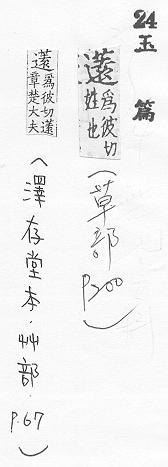 24玉篇
薳爲彼切
姓也
(草部
P200)
薳爲彼切薳
章楚大夫
(澤存堂本·艸部·
P.67)